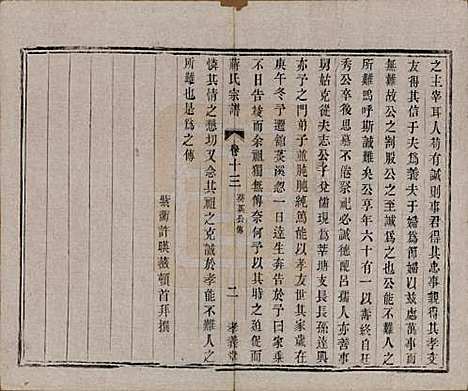 之主宰耳人苟有誠則事君得其忠事親得其孝交
友得其信于夫爲義夫于婦爲節婦于以感萬事而
無難故公之割股公之至誠爲之也公能不難人之
所難嗚呼斯誠難矣公享年六十有八以壽終自其
秀公卒後思慕倍切祭祀必誠德配呂孺人亦善事
舅姑克從夫志公子允
亦予之門弟子童肫肫純篤能以孝友世其家歲在
庚午冬予適館葵溪忽一日逵生奔告於予曰家乘
不日告竣而余祖獨無傳奈何予以其時之迫促而
憐其情之懇切又念其祖之克誠於孝能不難人之
所難也是爲之傳
紫蘭許暎薇頓首拜撰
蔣氏宗譜
卷十三
二
孝義堂